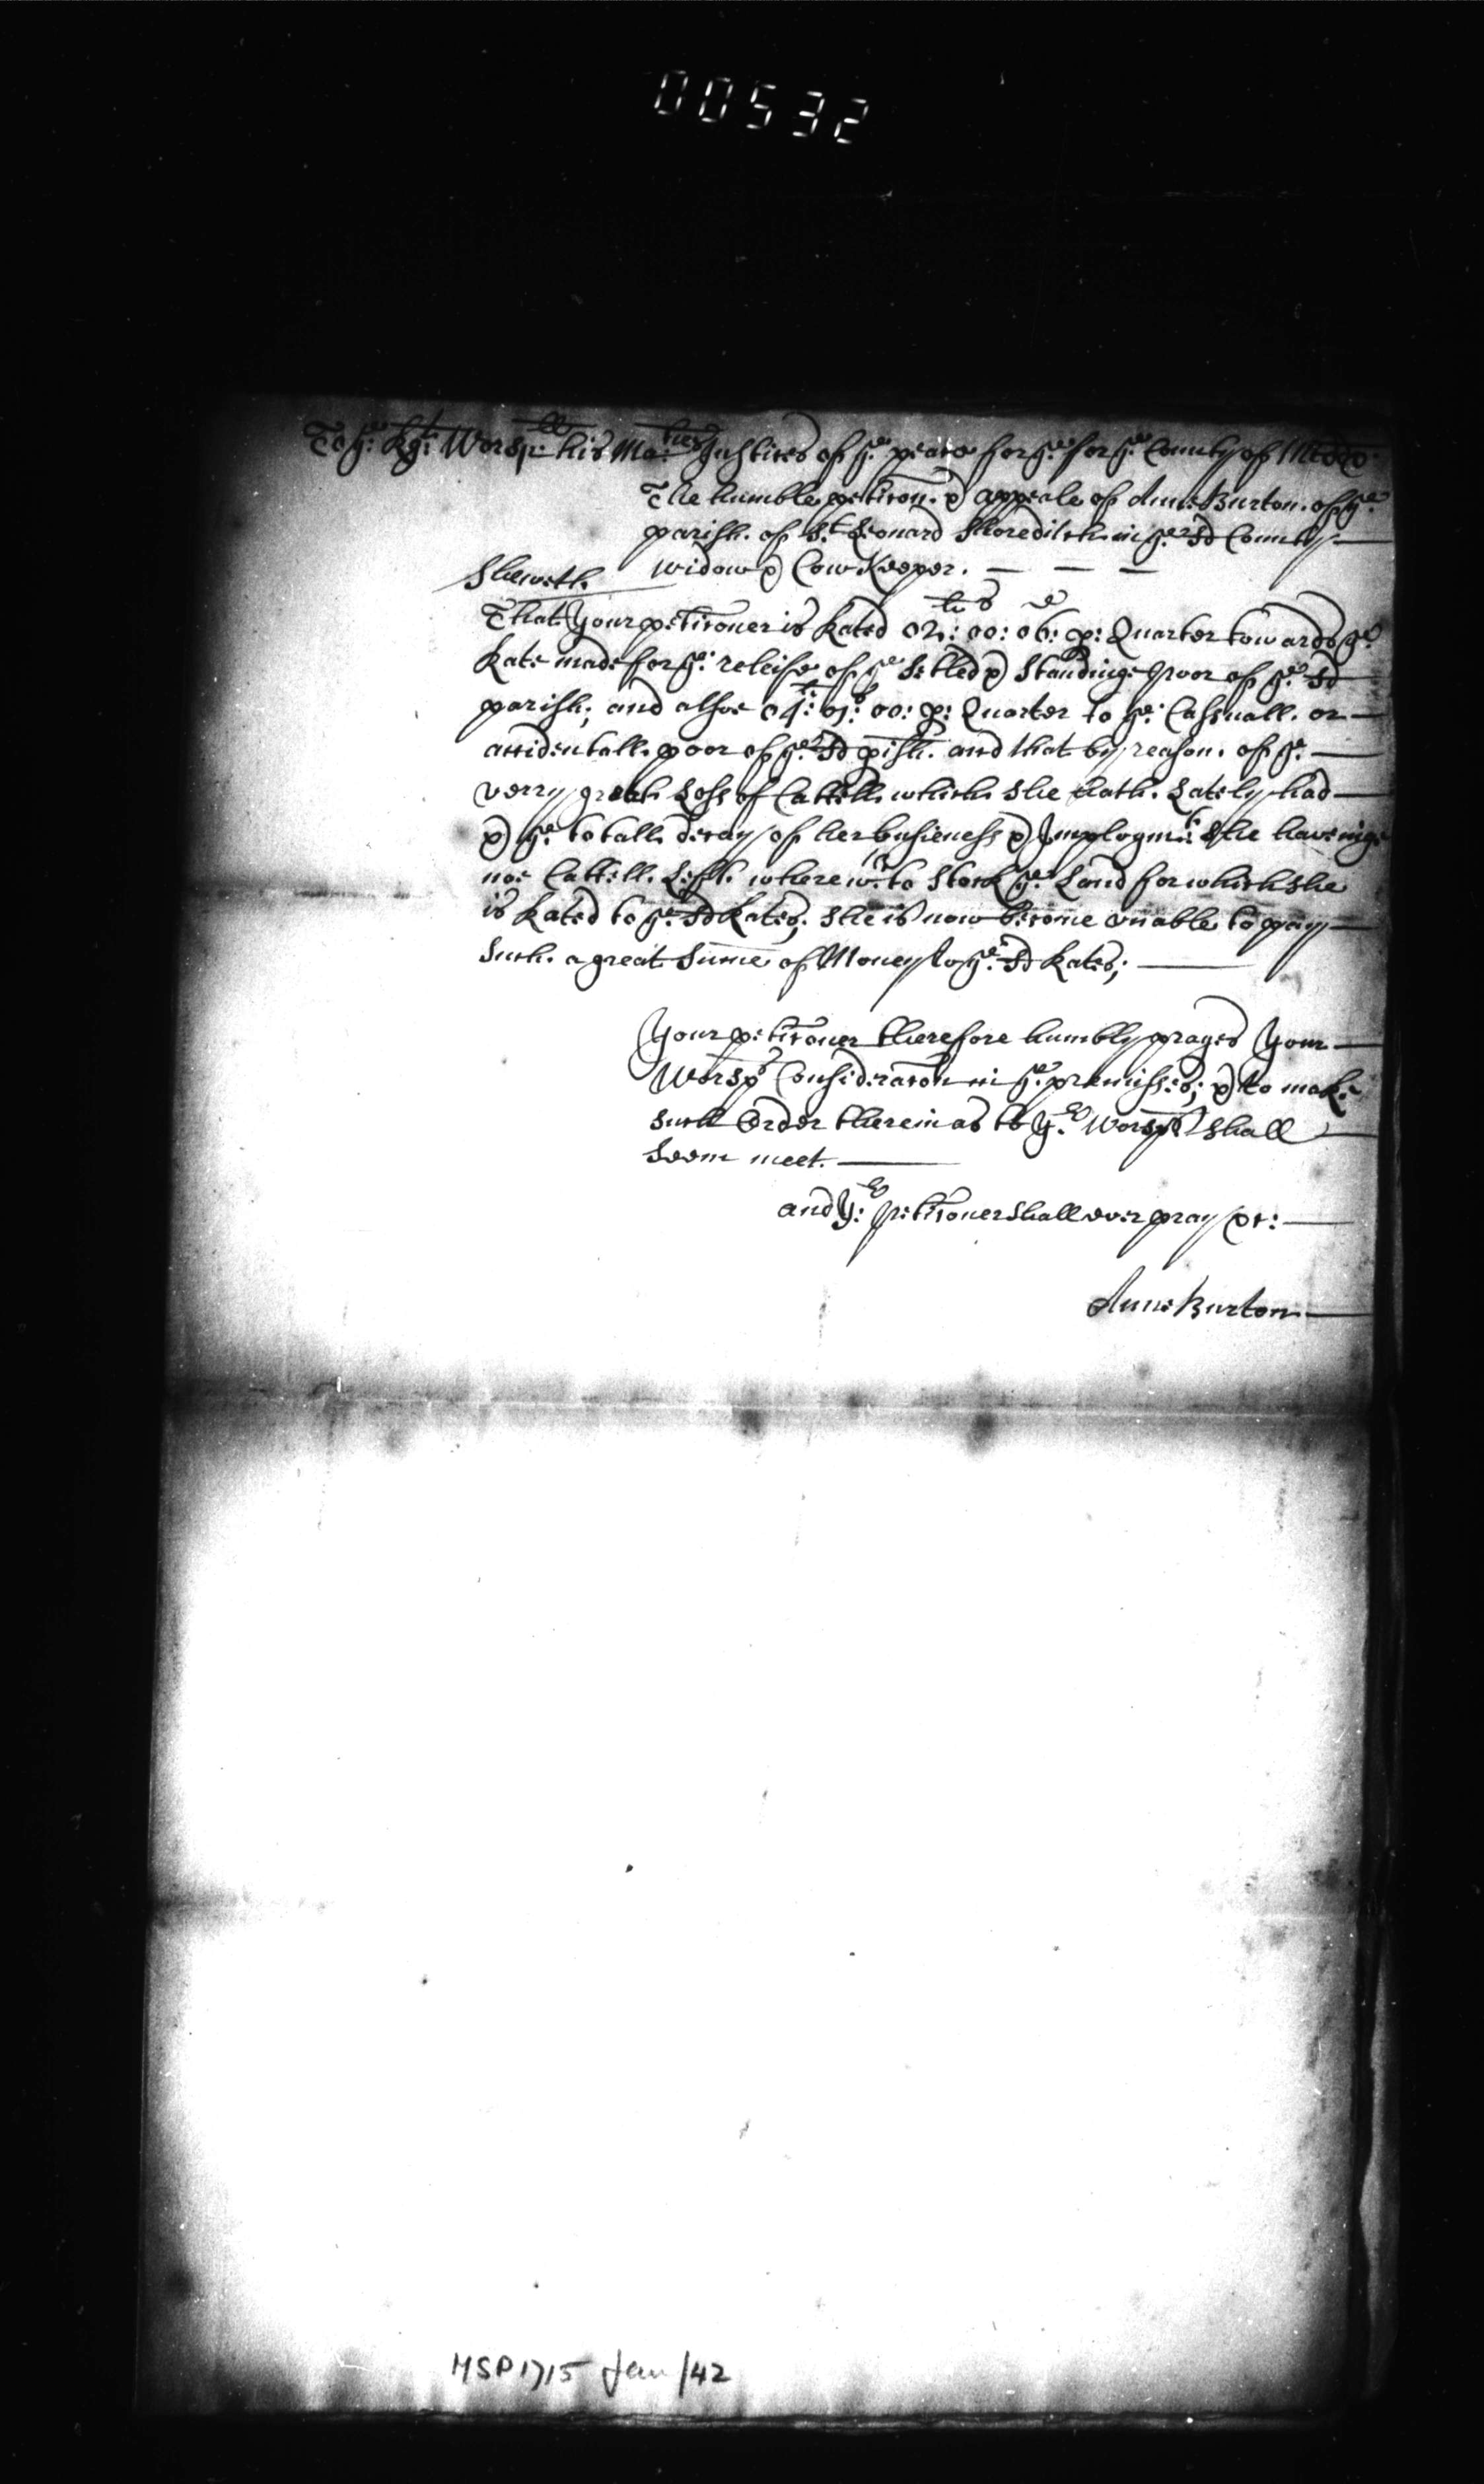 00532
To ye: Rgt: Worspll: his Ma:ties Justices of ye: peace for ye: for ye: County of Middx:
The humble peticon. & appeale of Anne Burton. of ye:
parish. of St. Leonard Shoreditch. in ye: sd County
Widow & Cow Keeper.
Sheweth.
That Your peticoner is Rated 02: 00: 06: p: Quarter towards ye
Rate made for ye: releife of ye settled & standinge Poor of ye: sd
parish; and alsoe 04: 01: 00: p: Quarter to ye: Cassuall. or
accidentall. poor of ye: sd pish. and that by reason. of ye:
verry great Loss of Cattell. which. she hath. Lately had
& ye: totall decay of her busieness & Imploymt: she haveinge
noe Cattell. Left. wherewth: to stock ye: Land for which she
is Rated to ye: sd Rates; she is now become vnable to pay
such. a great summe of Money to ye: sd Rates;
Your peticoner therefore humbly prayes Your
Worsps Consideracon in ye: premisses; & to make
such Order therein as to yr: Worsps shall
seem meet.
and yr: Peticoner shall ever pray &c:
Anne Burton
MSP 1715 Jan/42